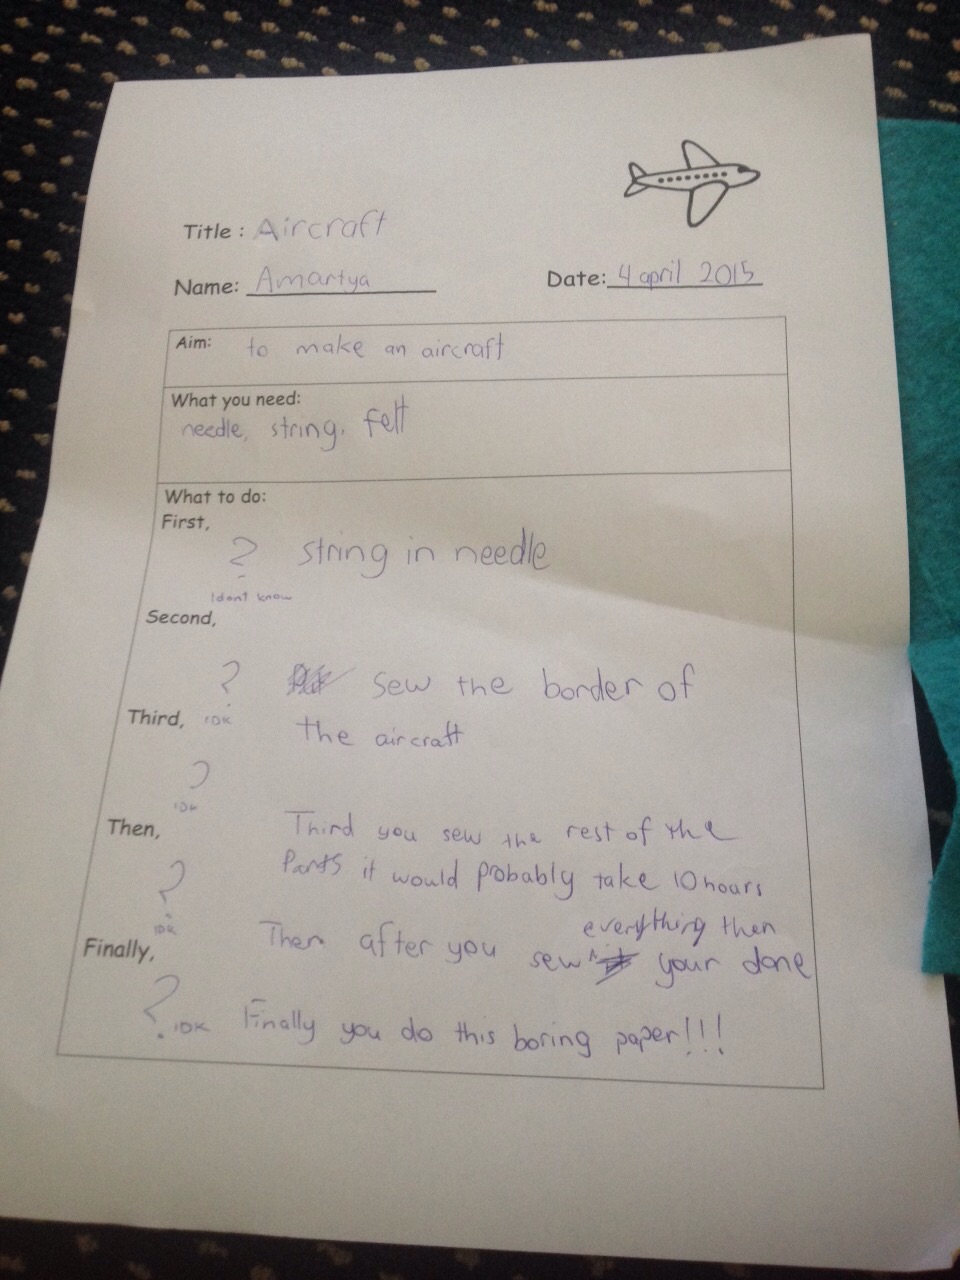 Title : Aircraft
Name: Amartya Date: 4 april 2015
Aim: to make an aircraft
What you need:
needle, string, felt
What to do:
First,
? string in needle
I dont know
Second,
? sew the border of
Third, IDK the aircraft
?
IDK
Then, Third you sew the rest of the
Parts it would probably take 10 hours
?
IDK
Finally, Then after you sew everything then your done
? IDK Finally you do this boring paper!!!